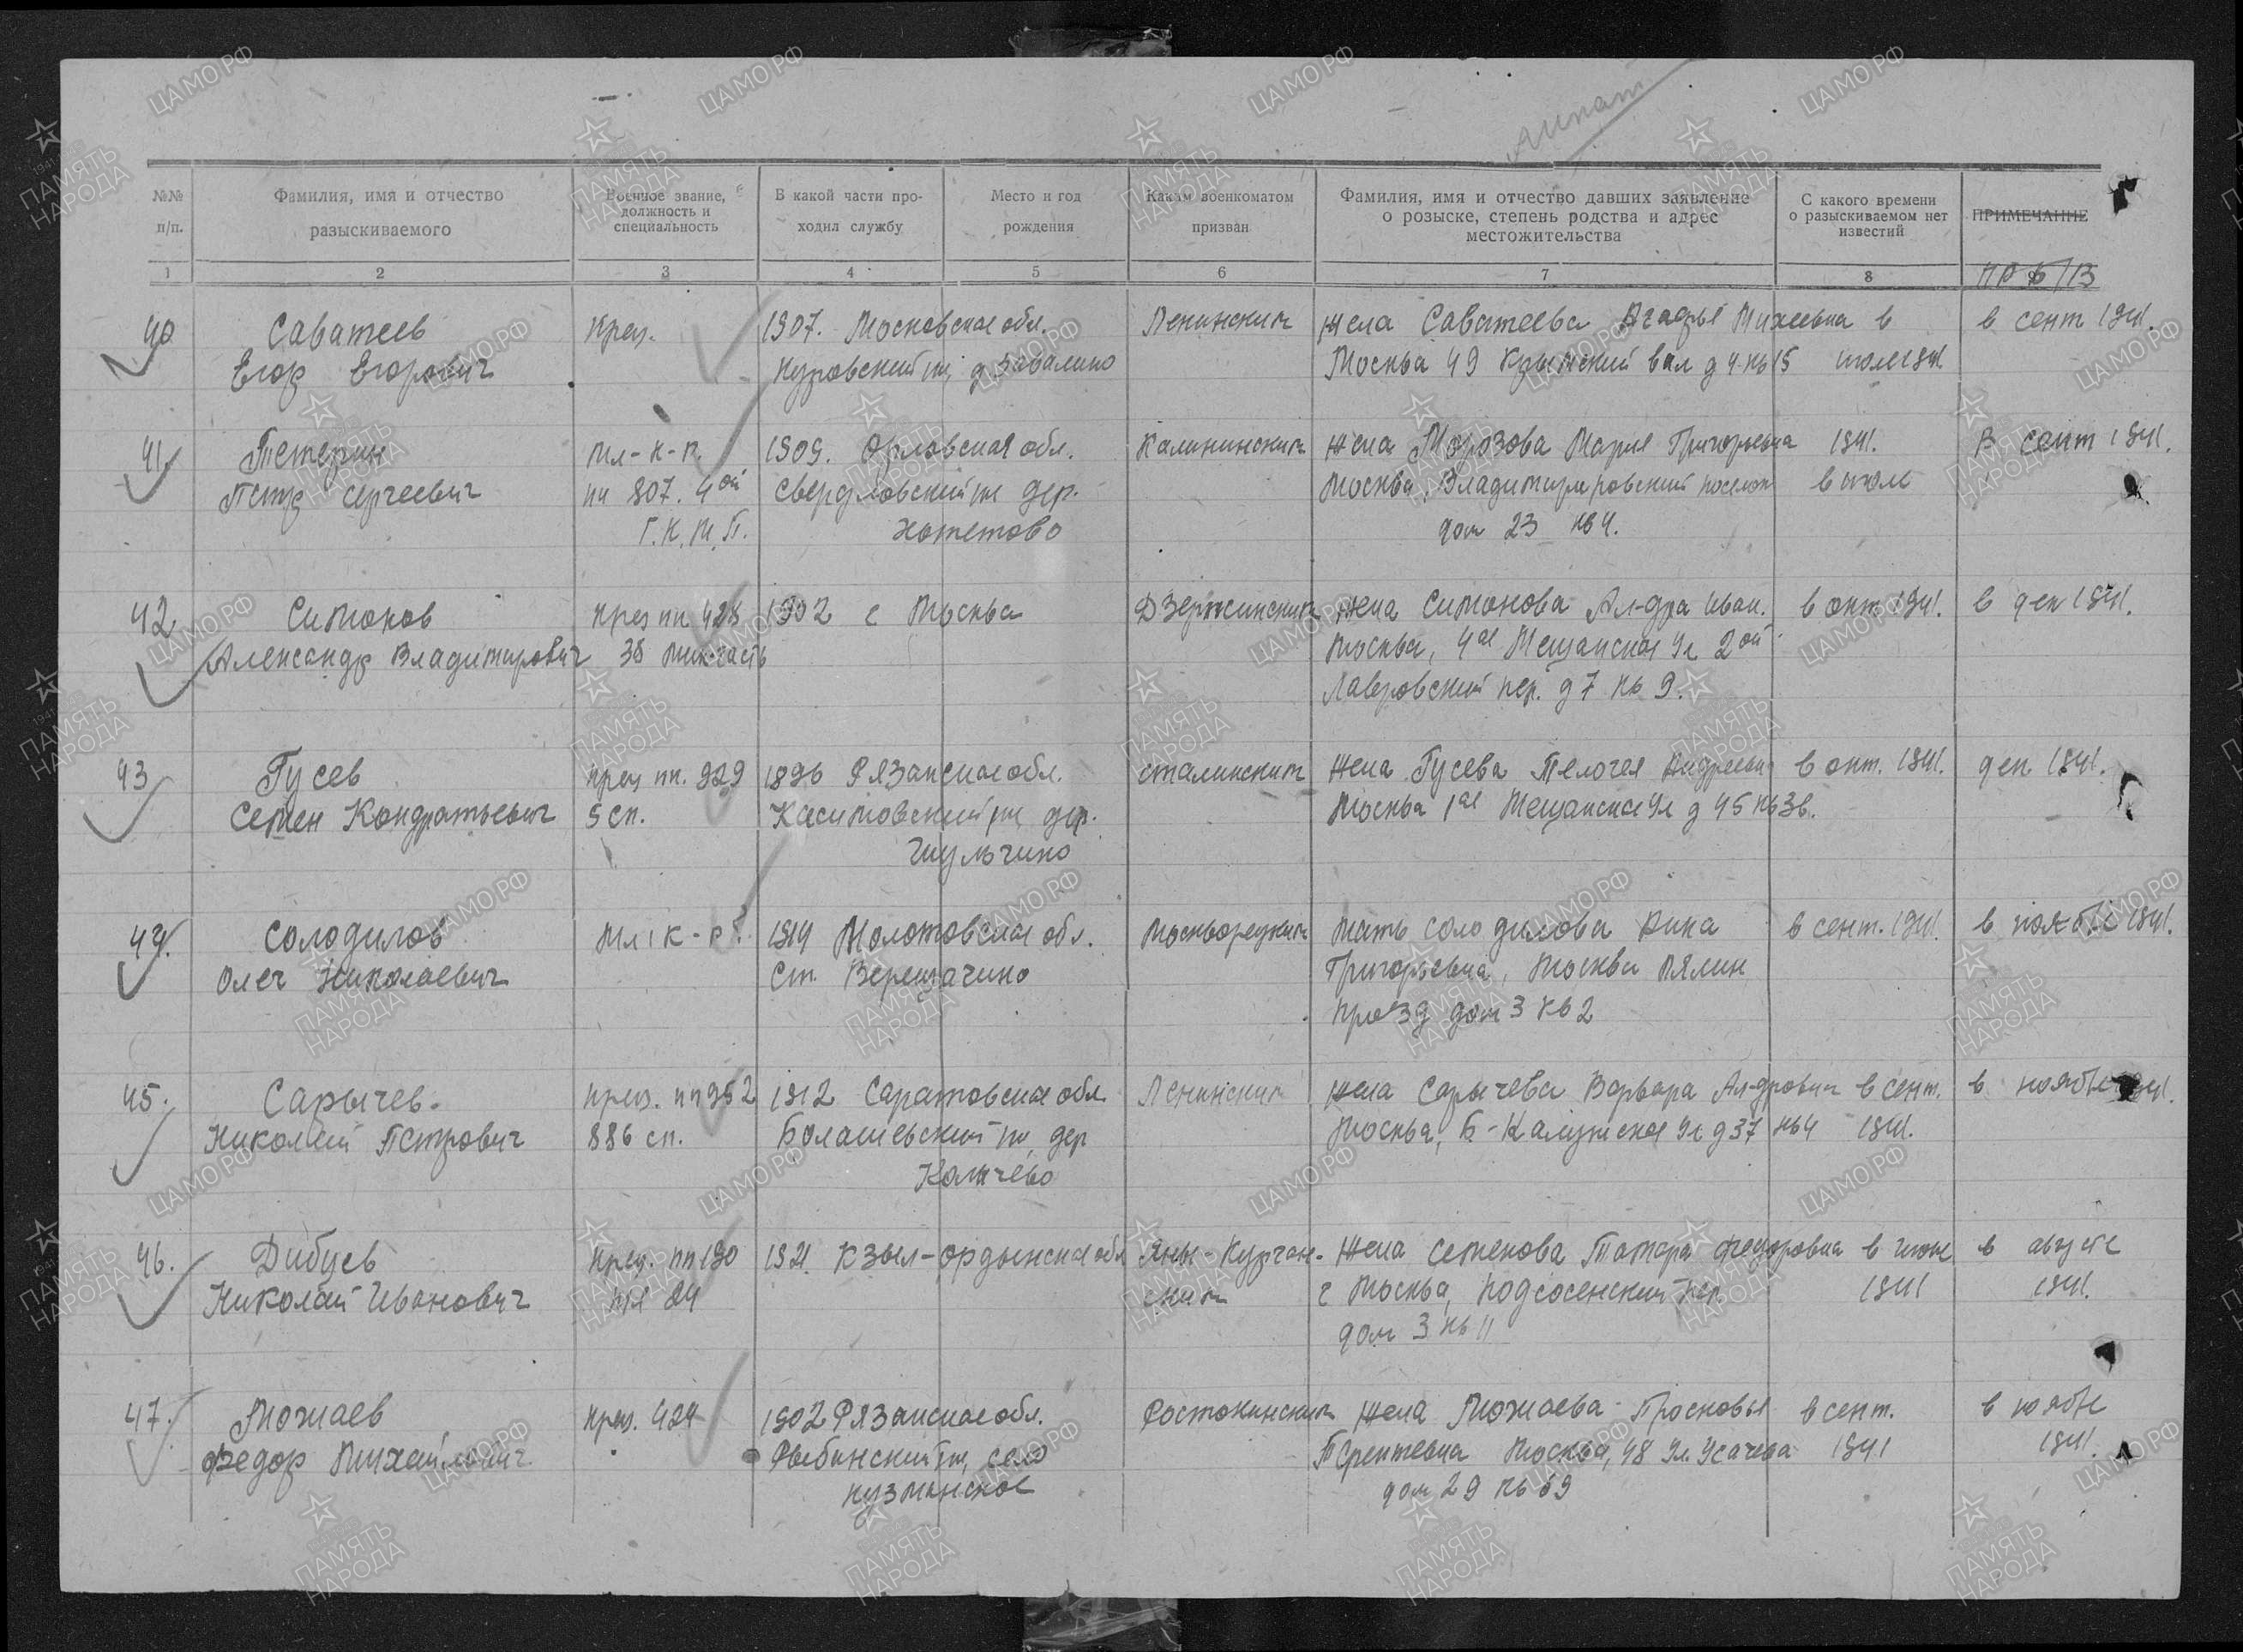 №№ п/п.
Фамилия, имя и отчество разыскиваемого
Военное звание, должность и специальность
В какой части проходил службу
Место и год рождения
Каким военкоматом призван
Фамилия, имя и отчество давших заявление о розыске, степень родства и адрес местожительства
С какого времени о разыскиваемом нет известий
ПРИМЕЧАНИЕ
1 2 3 4 5 6 7 8
40 Саватеев красн. 1907. Московская обл. Ленинским жена Саватеева Михеевна в в сент 1941.
Егор Егорович д. Москва 49 Крымский вал д 4 кв 15 июле 1941
41 Тетерин мл-к-р. 1909. Орловская обл. Калининским жена Морозова Мария Григорьевна 1941. в сент 1941.
Петр Сергеевич пп 807. 4ой Свердловский рн дер. Москва, поселок в июле
Г.К.М.П. Хотетово дом 23 кв 4.
42 Симонов крас пп 428 1902 г Москва Дзержинским жена Симонова Ал-дра Иван. в окт. 1941. в дек 1941.
Александр Владимирович 38 часть Москва, 4ая Мещанская ул 2ой
Лавровский пер. д 7 кв 9.
43 Гусев крас пп. 929 1896 Рязанская обл. Сталинским жена Гусева Пелогея Андреевна в окт. 1941. дек 1941.
Семен Кондратьевич 5 сп. Касимовский рн дер. Москва 1ая Мещанская ул д 45 кв 36.
44. Солодилов мл к-р. 1914 Молотовская обл. Москворецким мать Солодилова в сент. 1941. в нояб 1941.
Олег Николаевич ст. Верещагино Григорьевна, Москва
проезд дом 3 кв 2
45. Сарычев. крас. пп 952 1912 Саратовская обл. Ленинским жена Сарычева Варвара Ал-дровн в сент. в ноябре 1941.
Николай Петрович 886 сп. Балашевский рн, дер Москва, Б-Калужская ул д 37 кв 4 1941.
Колычево
46. Дибцев крас. пп 190 1921 Кзыл-ордынская обл Яны-Курган- жена Семенова Тамара Федоровна в июне в августе
Николай Иванович 24 ским г Москва, Подсосенский пер. 1941 1941.
дом 3 кв 11
47. Можаев крас. 424 1902 Рязанская обл. Ростокинским жена Можаева Просковья в сент. в ноябре
Федор Михайлович. Рыбинский рн, село Терентевна Москва, 48 ул. Усачева 1941 1941.
кузминское дом 29 кв 69
ЦАМО РФ
ПАМЯТЬ НАРОДА